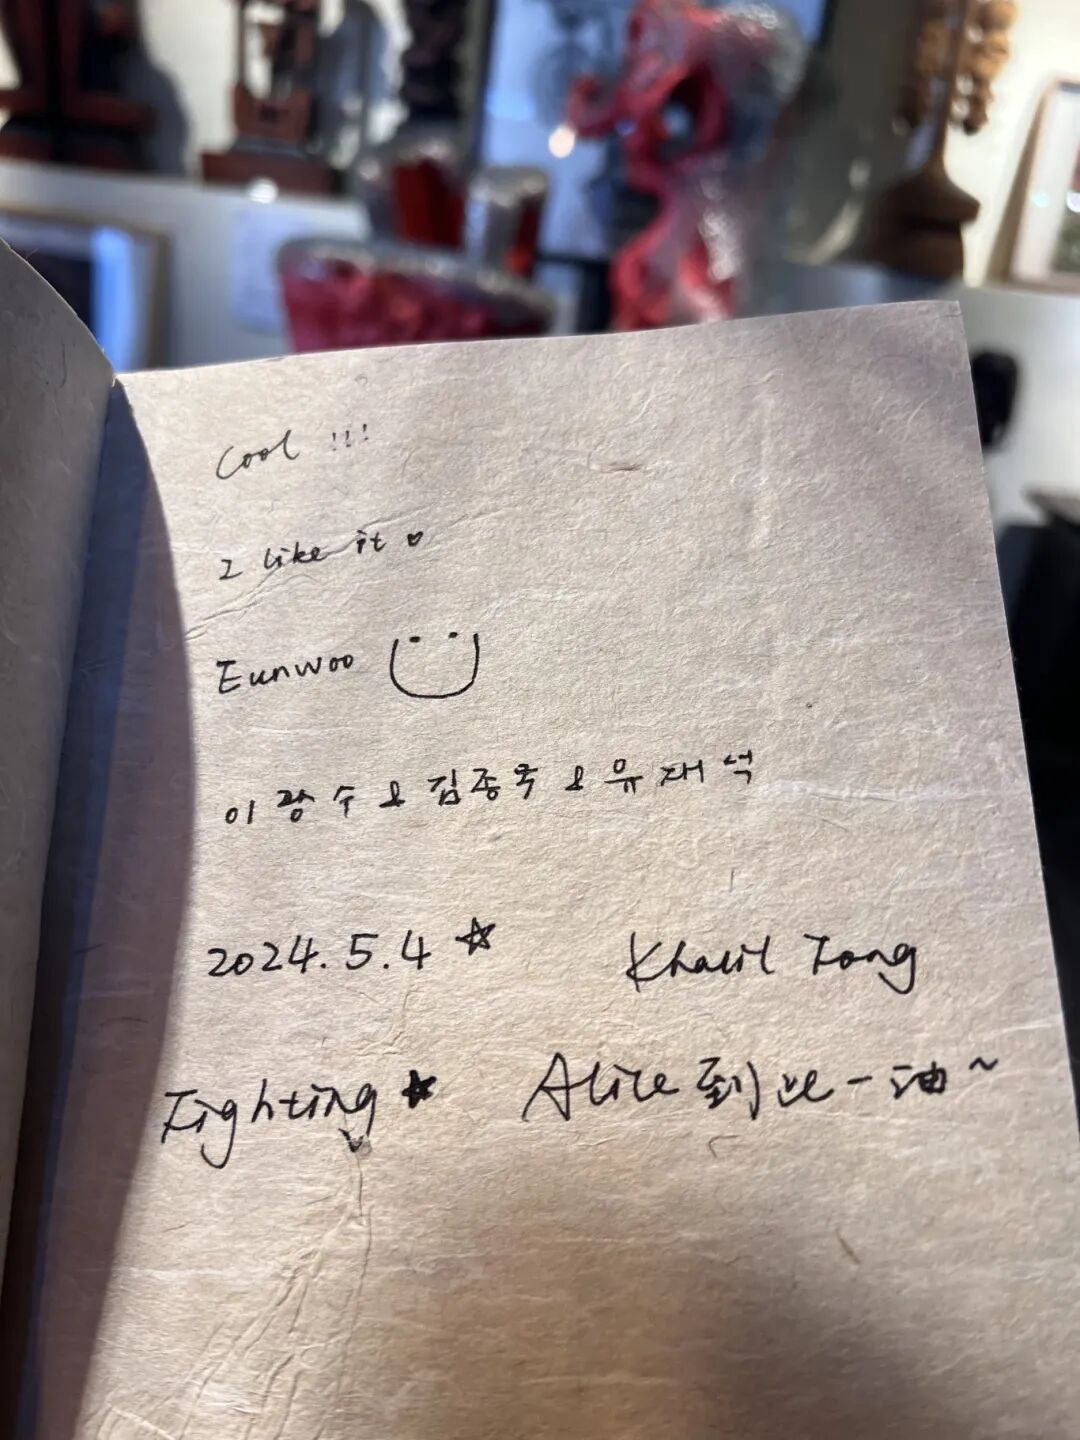 Cool !!!
I like it ♡
Eunwoo
이광수 & 김종국 & 유재석
2024.5.4 ☆
Khalil Fong
Fighting ★
Alice 到此一油~